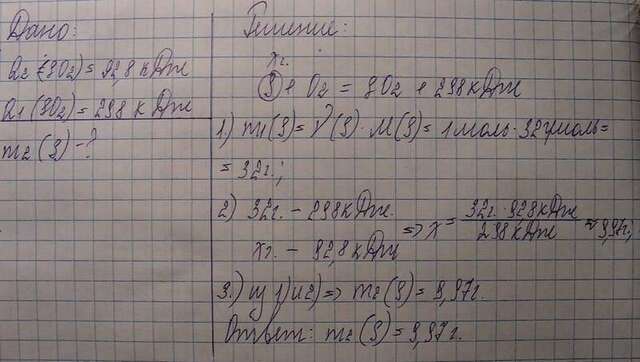 Дано:
Q2 (SO2) = 92,8 кДж
Q1 (SO2) = 298 кДж
m2 (S) - ?
Решение:
xг.
S + O2 = SO2 + 298 кДж
1) m1(S) = ν(S) · M(S) = 1 моль · 32 г/моль =
= 32 г.;
2) 32 г. – 298 кДж.
xг. – 92,8 кДж
=> x = 32 г. · 92,8 кДж / 298 кДж ≈ 9,97 г.
3.) из 1) и 2) => m2 (S) = 9,97 г.
Ответ: m2 (S) = 9,97 г.